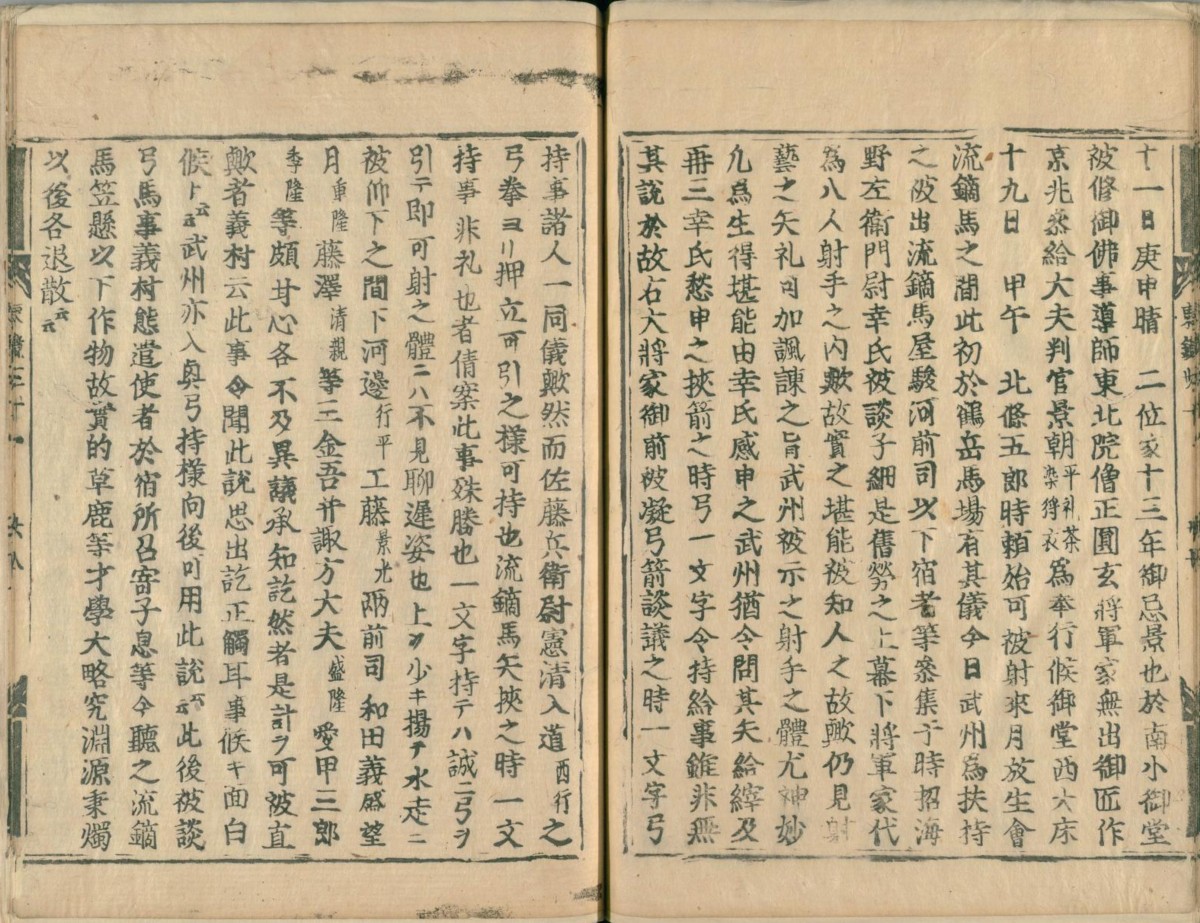 十一日庚申晴 二位家十三年御忌景也於南小御堂
被修御佛事導師東北院僧正圓玄將軍家無出御匠作
京兆参給大夫判官景朝平礼茶染狩衣為奉行候御堂西大床
十九日 甲午 北條五郎時頼始可被射来月放生會
流鏑馬之間此初於鶴岳馬場有其儀今日武州為扶持
之被出流鏑馬屋駿河前司以下宿者等参集于時招海
野左衛門尉幸氏被談子細是舊勞之上幕下將軍家代
為八人射手之内歟故實之堪能被知人之故歟仍見射
藝之矢礼可加諷諫之旨武州被示之射手之體尤神妙
凢為生得堪能由幸氏感申之武州猶令問其矢給縡及
再三幸氏愁申之挾箭之時弓一文字令持給事雖非無
其説於故右大將家御前被凝弓箭談議之時一文字弓
持事諸人一同儀歟然而佐藤兵衛尉憲清入道西行之
弓拳ヨリ押立可引之様可持也流鏑馬矢挾之時一文
持事非礼也者倩案此事殊勝也一文字持テハ誠ニ弓ヲ
引テ即可射之體ニハ不見聊遅姿也上ヲ少キ揚ヲ水走ニ
被仰下之間下河邊行平工藤景光兩前司和田義盛望
月重隆藤澤清親等三金吾并諏方大夫盛隆愛甲三郎
季隆等頗甘心各不及異議承知訖然者是計ヲ可被直
歟者義村云此事令聞此說思出訖正觸耳事候キ面白
候ト云云武州亦入興弓持様向後可用此説云云此後被談
弓馬事義村態遣使者於宿所召寄子息等令聽之流鏑
馬笠懸以下作物故實的草鹿等才學大略究淵源秉燭
以後各退散云云